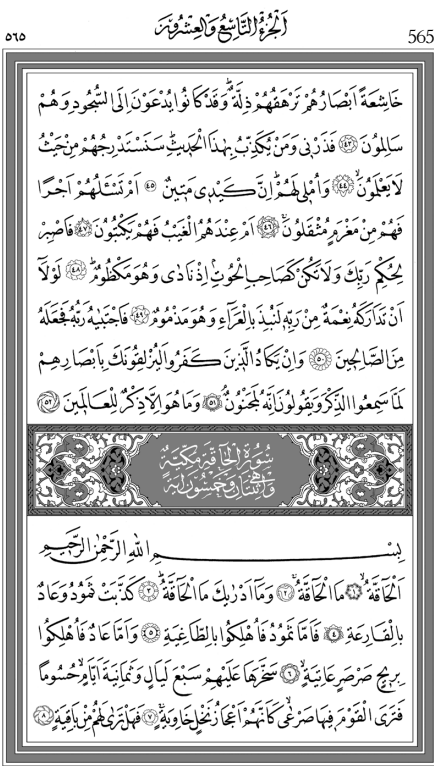 565
اَلْجُزْءُ التَّاسِعُ وَالْعِشْرُونَ
٥٦٥
خَاشِعَةً اَبْصَارُهُمْ تَرْهَقُهُمْ ذِلَّةٌۜ وَقَدْ كَانُوا يُدْعَوْنَ اِلَى السُّجُودِ وَهُمْ
سَالِمُونَ ﴿٤٣﴾ فَذَرْنٖي وَمَنْ يُكَذِّبُ بِهٰذَا الْحَدٖيثِۜ سَنَسْتَدْرِجُهُمْ مِنْ حَيْثُ
لَا يَعْلَمُونَۙ ﴿٤٤﴾ وَاُمْلٖي لَهُمْۜ اِنَّ كَيْدٖي مَتٖينٌ ﴿٤٥﴾ اَمْ تَسْـَٔلُهُمْ اَجْرًا
فَهُمْ مِنْ مَغْرَمٍ مُثْقَلُونَۚ ﴿٤٦﴾ اَمْ عِنْدَهُمُ الْغَيْبُ فَهُمْ يَكْتُبُونَ ﴿٤٧﴾ فَاصْبِرْ
لِحُكْمِ رَبِّكَ وَلَا تَكُنْ كَصَاحِبِ الْحُوتِۢ اِذْ نَادٰى وَهُوَ مَكْظُومٌۜ ﴿٤٨﴾ لَوْلَٓا
اَنْ تَدَارَكَهُ نِعْمَةٌ مِنْ رَبِّهٖ لَنُبِذَ بِالْعَرَٓاءِ وَهُوَ مَذْمُومٌ ﴿٤٩﴾ فَاجْتَبٰيهُ رَبُّهُ فَجَعَلَهُ
مِنَ الصَّالِحٖينَ ﴿٥٠﴾ وَاِنْ يَكَادُ الَّذٖينَ كَفَرُوا لَيُزْلِقُونَكَ بِاَبْصَارِهِمْ
لَمَّا سَمِعُوا الذِّكْرَ وَيَقُولُونَ اِنَّهُ لَمَجْنُونٌۢ ﴿٥١﴾ وَمَا هُوَ اِلَّا ذِكْرٌ لِلْعَالَمٖينَ ﴿٥٢﴾
سُورَةُ الْحَاقَّةِ مَكِّيَّةٌ
وَهِيَ اثْنَتَانِ وَخَمْسُونَ اٰيَةً
بِسْمِ اللّٰهِ الرَّحْمٰنِ الرَّحٖيمِ
اَلْحَٓاقَّةُۙ ﴿١﴾ مَا الْحَٓاقَّةُۚ ﴿٢﴾ وَمَٓا اَدْرٰيكَ مَا الْحَٓاقَّةُۜ ﴿٣﴾ كَذَّبَتْ ثَمُودُ وَعَادٌ
بِالْقَارِعَةِ ﴿٤﴾ فَاَمَّا ثَمُودُ فَاُهْلِكُوا بِالطَّاغِيَةِ ﴿٥﴾ وَاَمَّا عَادٌ فَاُهْلِكُوا
بِرٖيحٍ صَرْصَرٍ عَاتِيَةٍۙ ﴿٦﴾ سَخَّرَهَا عَلَيْهِمْ سَبْعَ لَيَالٍ وَثَمَانِيَةَ اَيَّامٍۙ حُسُومًا
فَتَرَى الْقَوْمَ فٖيهَا صَرْعٰىۙ كَاَنَّهُمْ اَعْجَازُ نَخْلٍ خَاوِيَةٍۚ ﴿٧﴾ فَهَلْ تَرٰى لَهُمْ مِنْ بَاقِيَةٍ ﴿٨﴾